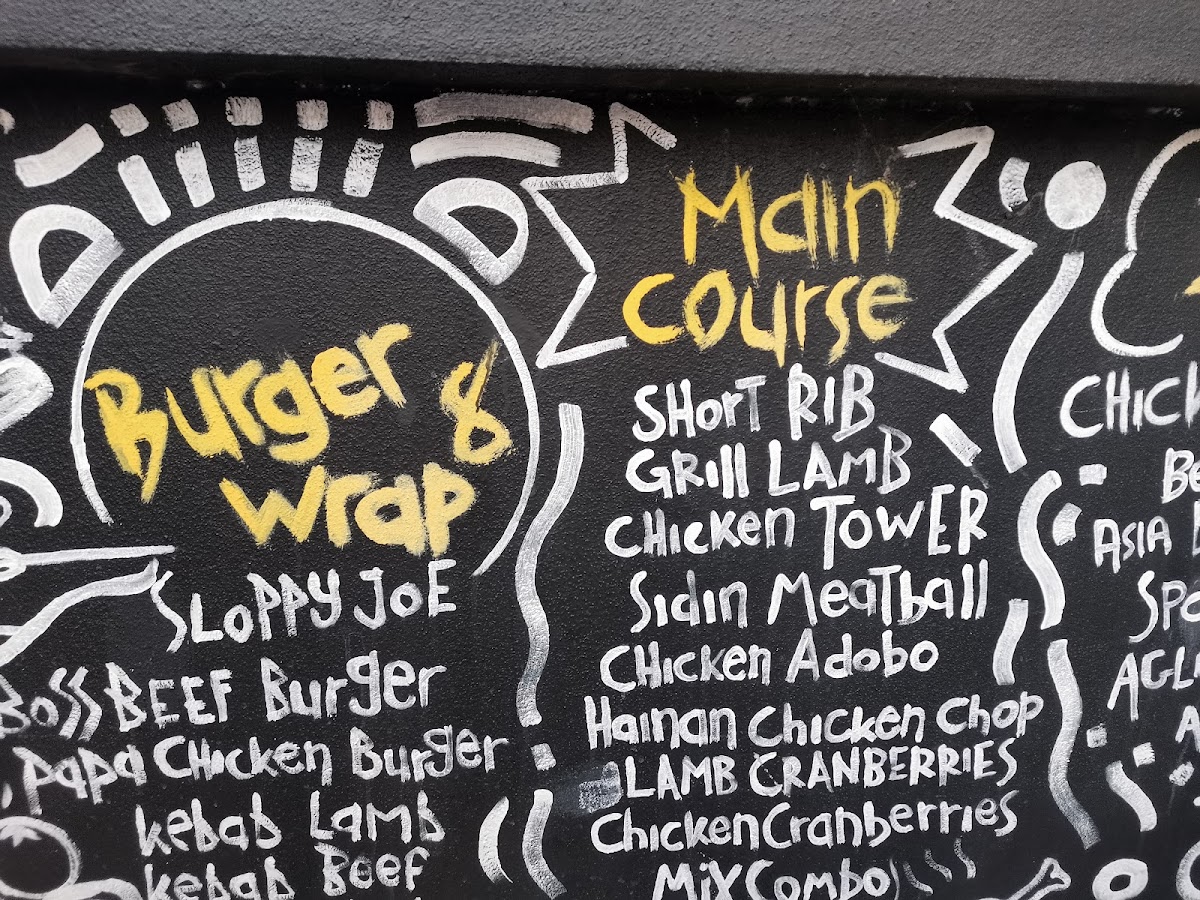 Burger &
wrap
SLOPPY JOE
BOSS BEEF Burger
Papa CHicken Burger
kebab Lamb
kebab Beef
Main
course
SHorT RIB
GRIll LAMB
CHicken TOWER
Sidin MeaTball
CHicken Adobo
Hainan chicken chop
LAMB CRANBERRIES
Chicken Cranberries
MiX Combo
ASIA